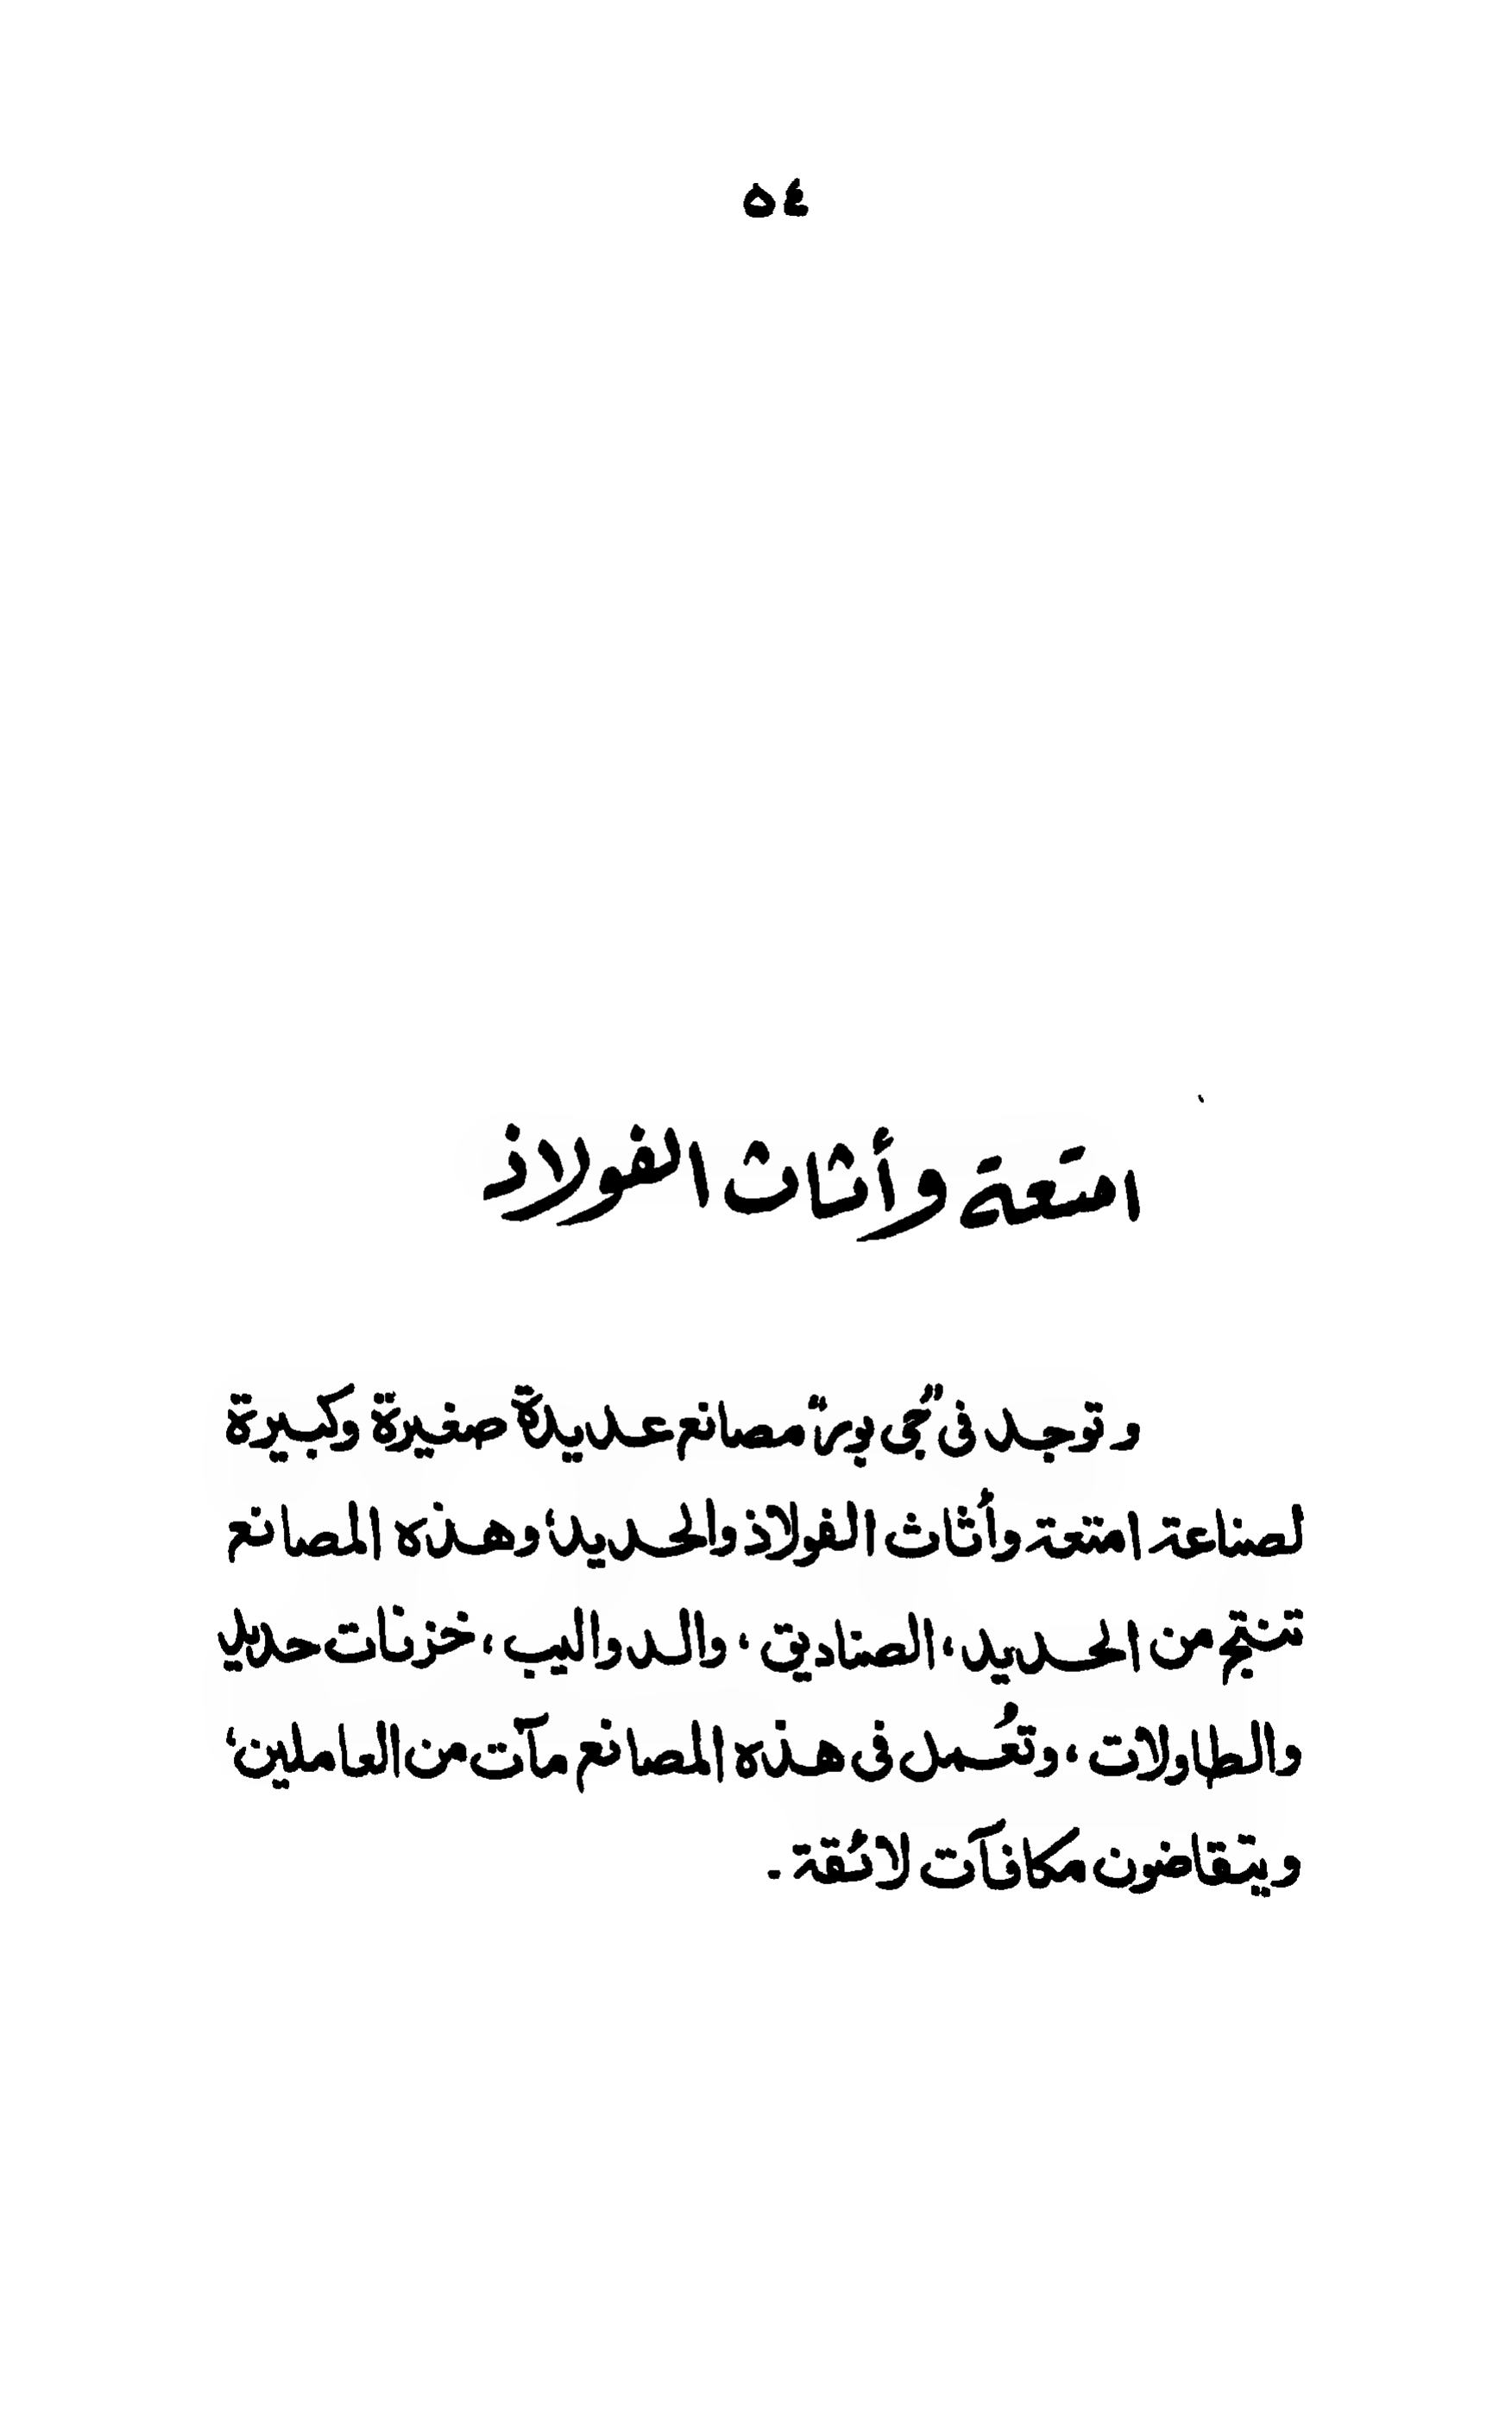 ٥٤
امتعة وأثاث الفولاذ
وتوجد فى "جى بور" مصانع عديدة صغيرة وكبيرة
لصناعة امتعة وأثاث الفولاذ والحديد، وهذه المصانع
تنتج من الحديد، الصناديق، والدواليب، خزنات حديد
والطاولات، وتعُمل فى هذه المصانع مآت من العاملين،
ويتقاضون مكافآت لائقة -